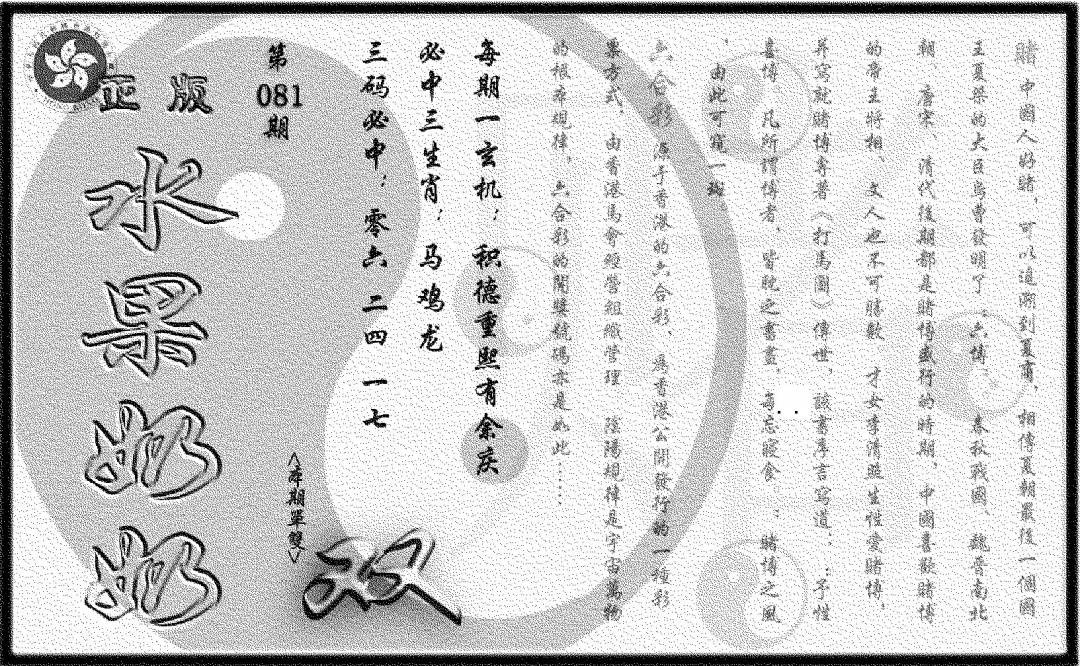 賭 中國人好賭，可以追溯到夏商，相傳夏朝最後一個國
王夏桀的大臣烏曹發明了：六博；春秋戰國、魏晉南北
朝、唐宋、清代後期都是賭博盛行的時期，中國喜歡賭博
的帝王將相 文人也不可勝數 才女李清照生性愛賭博，
并寫就賭博專著《打馬圖》傳世，該書序言寫道：：予性
喜博，凡所謂博者，皆耽之晝盡，每忘寢食。：賭博之風
，由此可窺一斑。
六合彩 源于香港的六合彩、為香港公開發行的一種彩
票方式，由香港馬會經營組織管理 陰陽規律是宇宙萬物
的根本規律，六合彩的開獎號碼亦是如此……
每期一玄机；积德重熙有余庆
必中三生肖；马鸡龙
三码必中；零六 二四 一七
第
081
期
<本期單雙>
双
正版
水果奶奶